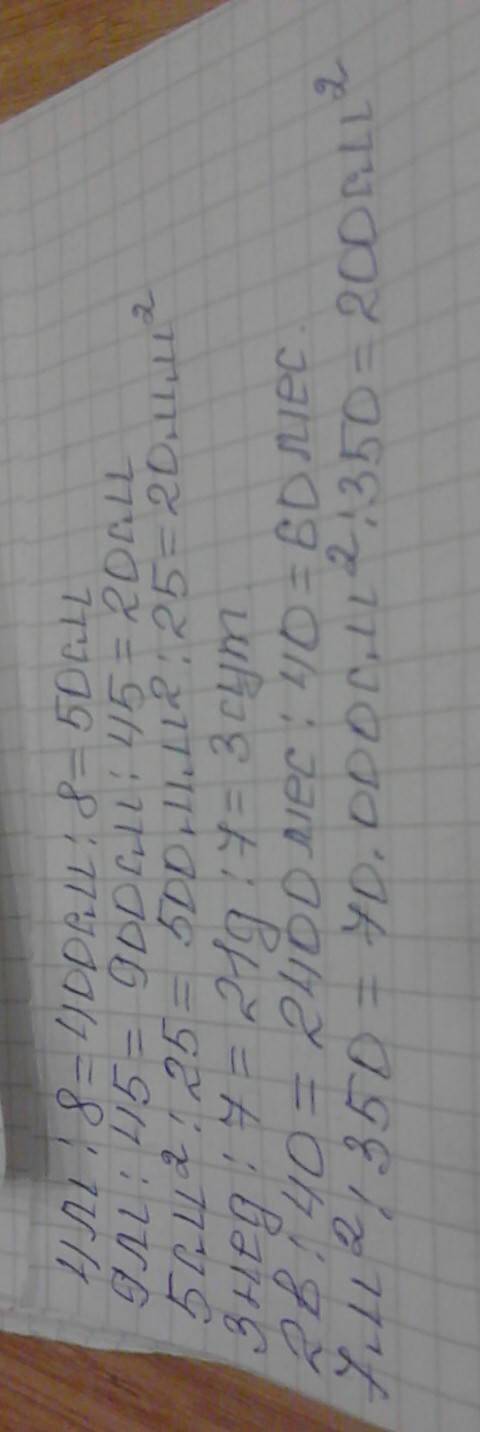 4м : 8 = 400см : 8 = 50см
9м : 45 = 900см : 45 = 20см
5см² : 25 = 500мм² : 25 = 20мм²
3нед : 7 = 21д : 7 = 3сут
2в : 40 = 2400мес : 40 = 60мес.
7м² : 350 = 70.000см² : 350 = 200см²